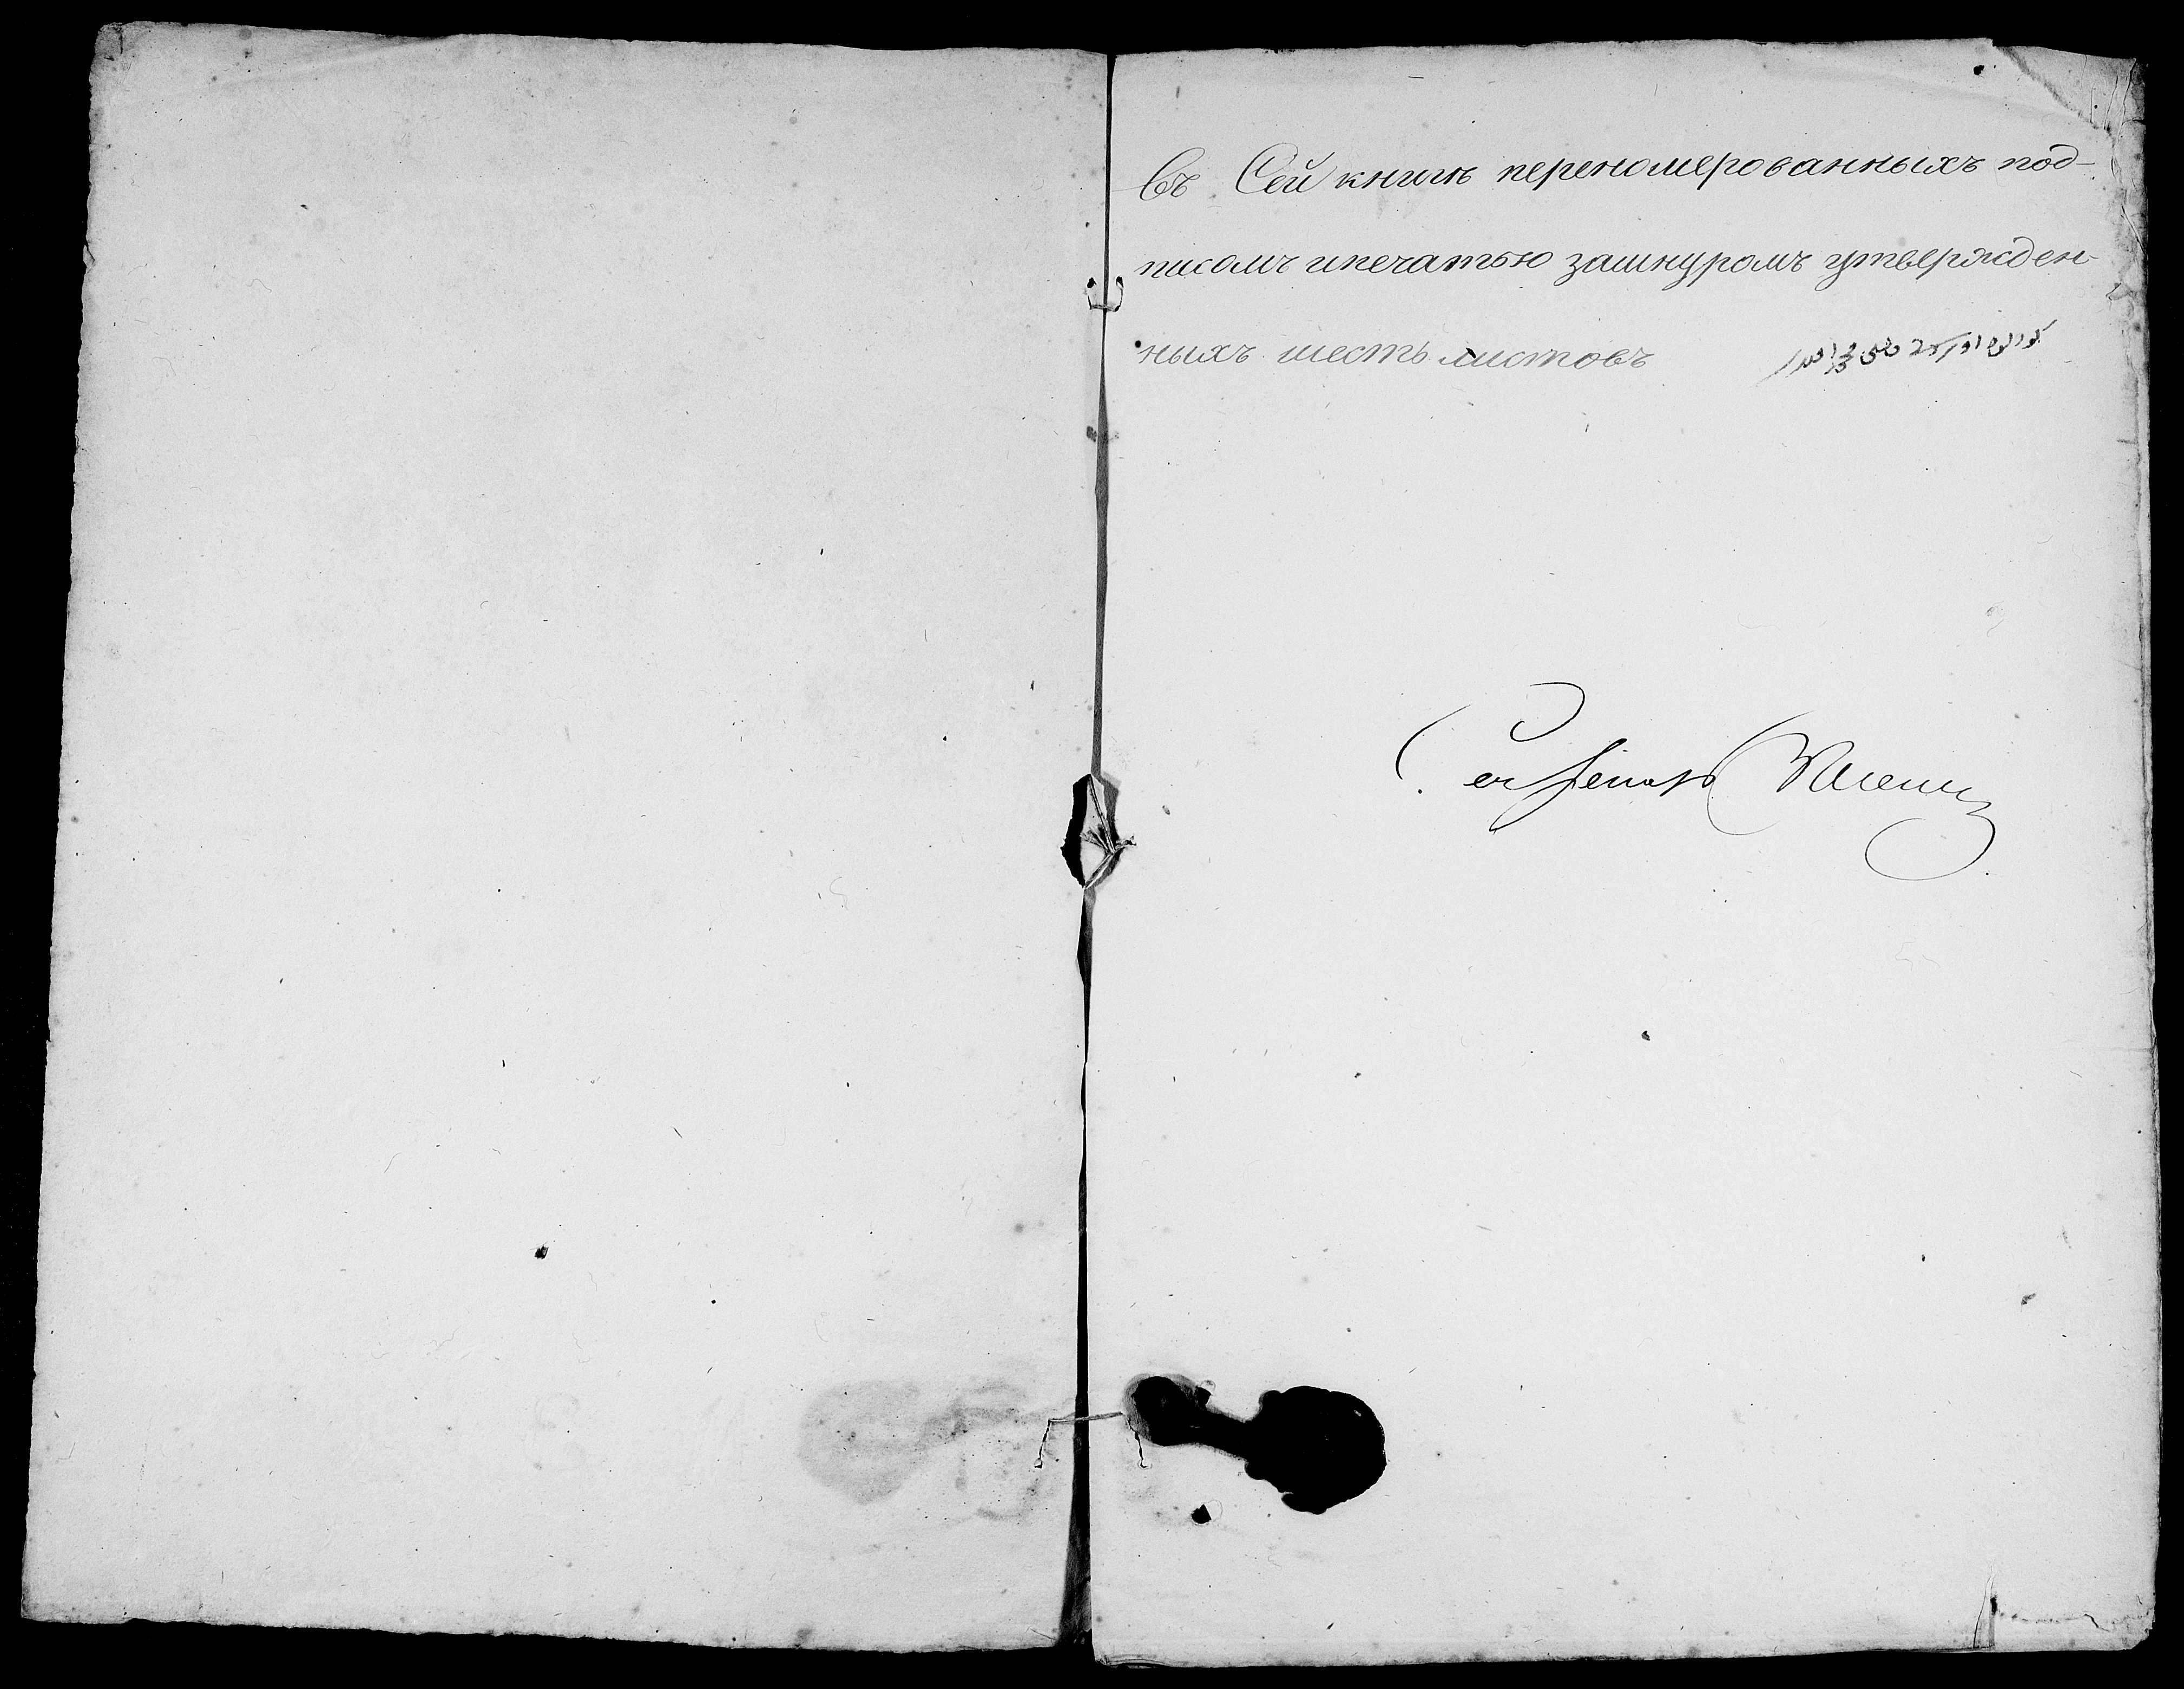 Въ Сей книгѣ переномерованныхъ под-
писомъ ипечатью зашнуромъ утвержден-
ныхъ шесть листовъ